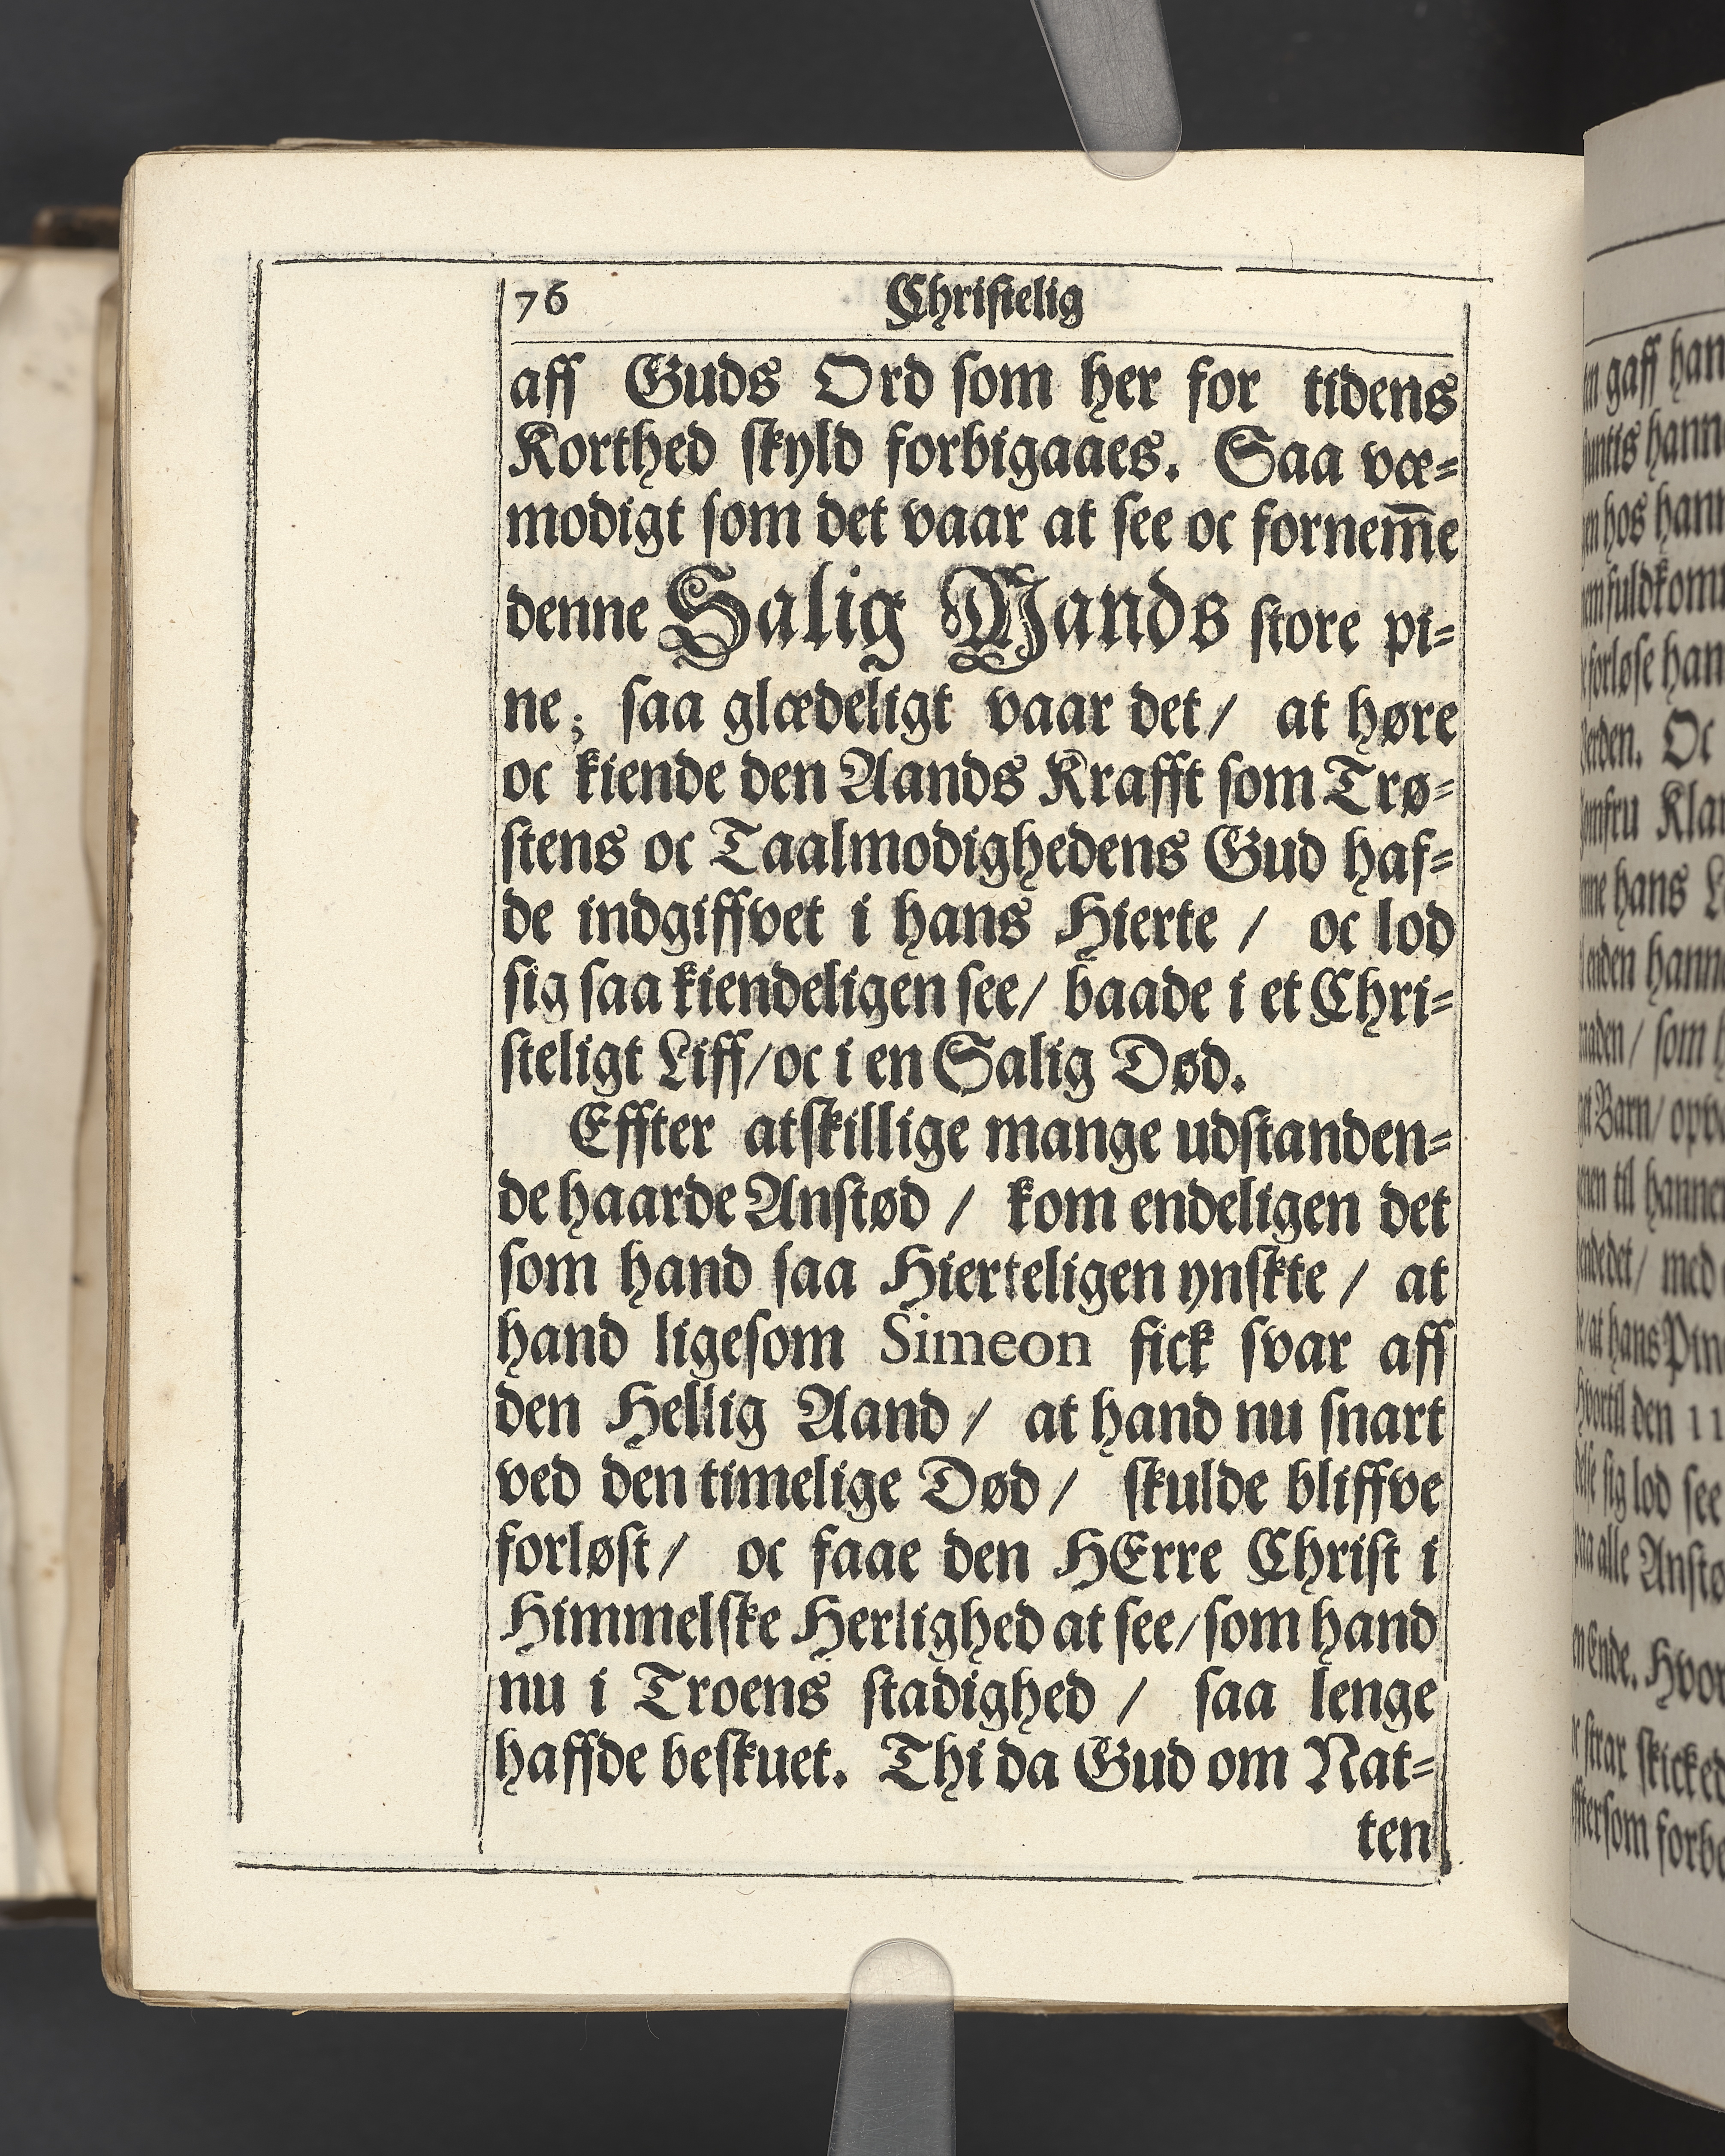 76 Christelig
aff Guds Ord som her for tidens
Korthed skyld forbigaaes. Saa væ=
modigt som det vaar at see oc fornem̅e
denne Salig Mands store pi=
ne; saa glædeligt vaar det/ at høre
oc kiende den Aands Krafft som Trø=
stens oc Taalmodighedens Gud haf=
de indgiffvet i hans Hierte / oc lod
sig saa kiendeligen see/ baade i et Chri=
steligt Liff/oc i en Salig Død.
Effter atskillige mange udstanden=
de haarde Anstød / kom endeligen det
som hand saa Hierteligen ynskte / at
hand ligesom Simeon fick svar aff
den Hellig Aand / at hand nu snart
ved den timelige Død / skulde bliffve
forløst / oc faae den HErre Christ i
Himmelske Herlighed at see/som hand
nu i Troens stadighed / saa lenge
haffde beskuet. Thi da Gud om Nat=
ten
gaff
hos
Oc
Klar
hans
enden
som
Barn/
til
med
at hans
den 11
sig lod see
alle
Ende.
skicked